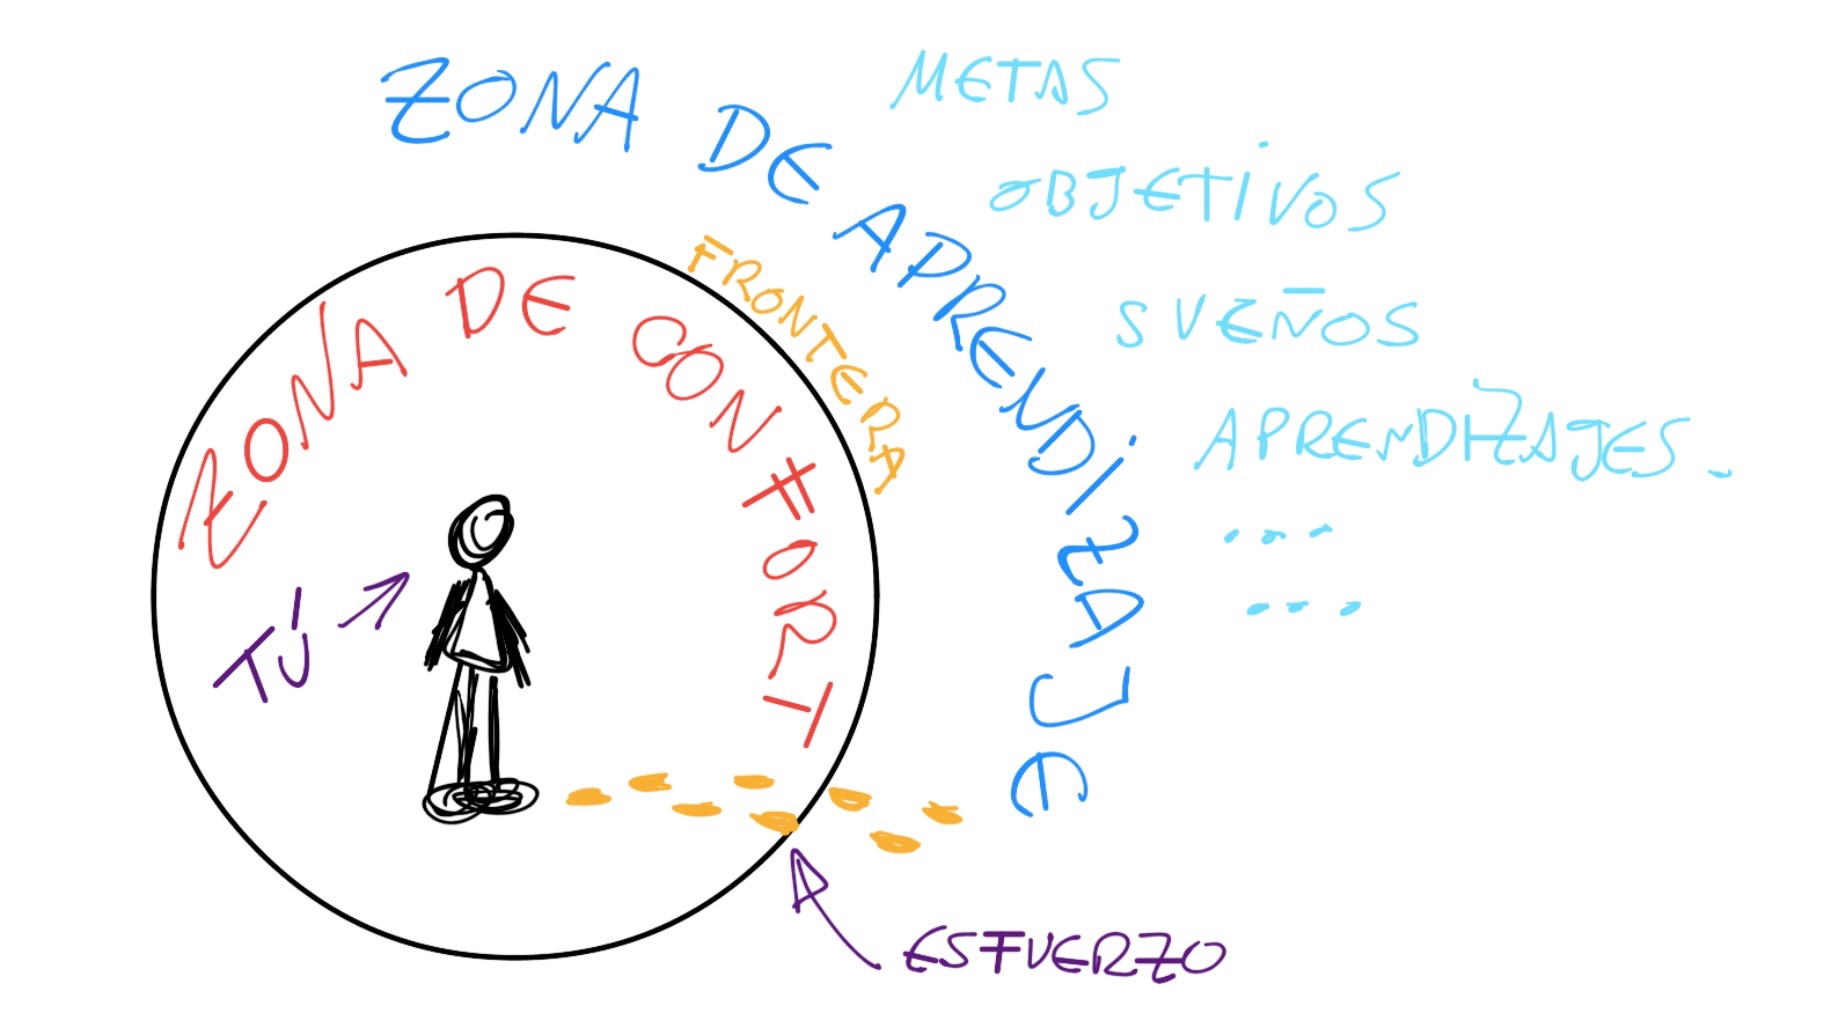 ZONA DE APRENDIZAJE
METAS
OBJETIVOS
SUEÑOS
APRENDIZAJES.
...
...
FRONTERA
ZONA DE CONFORT
TÚ
ESFUERZO